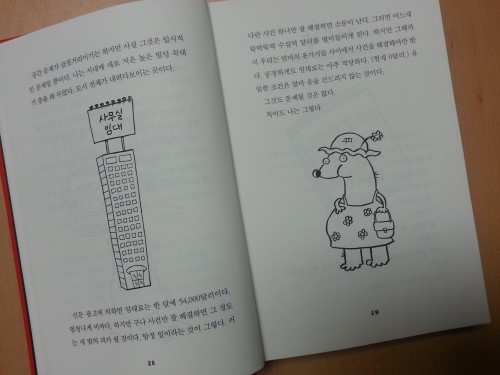 공간 문제가 골칫거리이기는 하지만 사실 그것은 일시적
인 문제일 뿐이다. 나는 시내에 새로 지은 높은 빌딩 꼭대
기 층을 봐 두었다. 도시 전체가 내려다보이는 곳이다.
사무실
임대
신문 광고에 의하면 임대료는 한 달에 54,000달러이다.
엄청나게 비싸다. 하지만 사건만 잘 해결하면 그 정도
는 새 발의 피가 될 것이다. 탐정 일이라는 것이 그렇다. 커
28
다란 사건 하나만 잘 해결하면 소문이 난다. 그러면 어느새
뚝딱뚝딱 수십억 달러를 벌어들이게 된다. 하지만 그때까
지 우리는 엄마의 옷가지들 사이에서 사건을 해결해야만 한
다. 공정하게도 임대료는 아주 적당하다. (현재 0달러!) 유
일한 조건은 엄마 옷을 건드리지 않는 것이다.
그것도 문제될 것은 없다.
적어도 나는 그렇다.
29